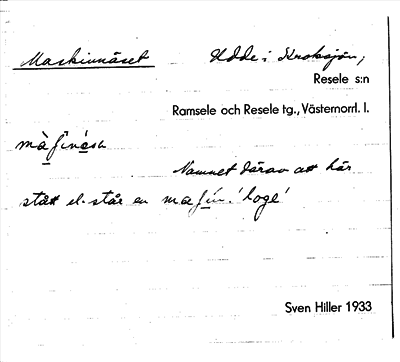 Maskinnäset Udde i Kroksjön,
Resele s:n
Ramsele och Resele tg., Västernorrl. l.
Namnet därav att här
stått el. står en maʃin!loge!
Sven Hiller 1933